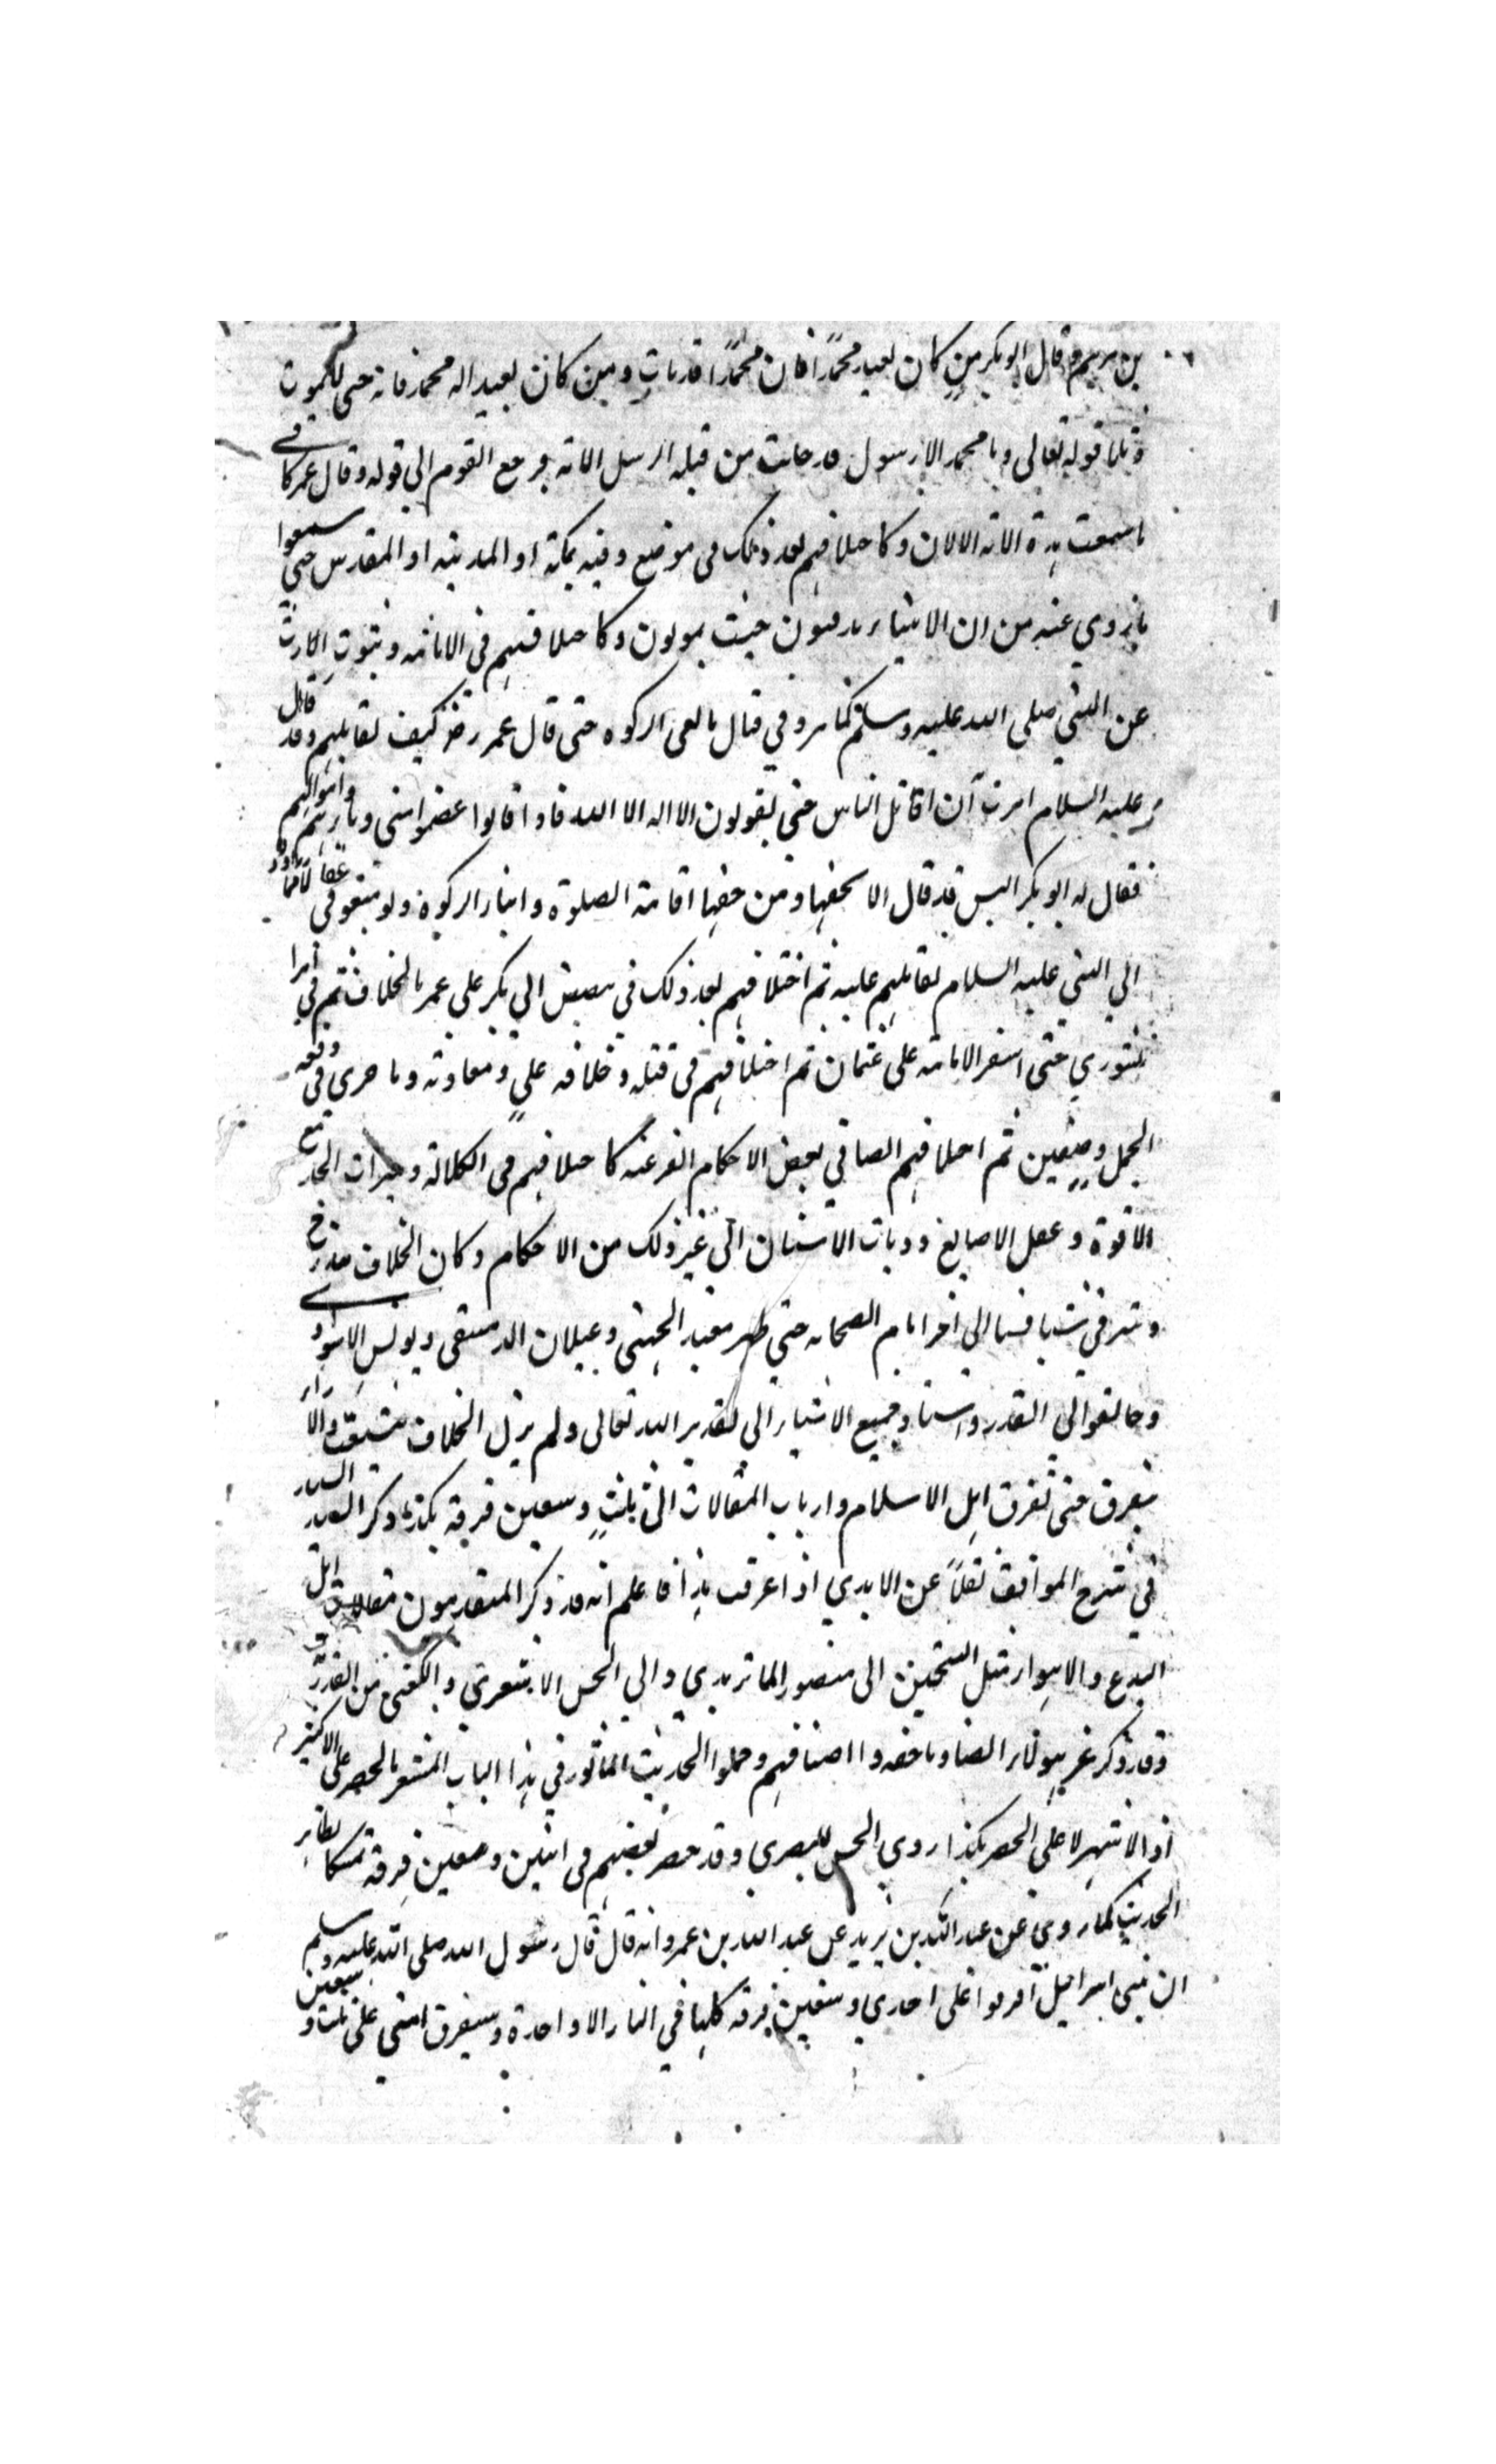 بن مريم وقال ابو بكر من كان يعبد محمدًا فان محمدًا قد مات ومن كان يعبد اله محمد فانه حى لا يموت
وتلا قوله تعالى وما محمد الا رسول قد خلت من قبله الرسل الاية فرجع القوم الى قوله وقال عمر كانى
ما سمعت هذه الاية الا الان وكاختلافهم بعد ذلك فى موضع دفنه بمكة او المدينة او المقدس حتى سمعوا
ما روي عنه من ان الانبياء يدفنون حيث يموتون وكاختلافهم فى الامامة وثبوت الارث
عن النبي صلى الله عليه وسلم كما مر وفي قتال مانعى الزكوة حتى قال عمر رض كيف تقاتلهم وقد قال
عليه السلام امرت ان اقاتل الناس حتى يقولون لا اله الا الله فاذا قالوا عصموا منى دمائهم واموالهم
فقال له ابو بكر اليس قد قال الا بحقها ومن حقها اقامة الصلوة وايتاء الزكوة ولو منعونى عقالا مما ادوا
الي النبي عليه السلام لقاتلهم عليه ثم اختلافهم بعد ذلك في تنصيص ابي بكر على عمر بالخلافة ثم في امر
الشوري حتى استقر الامامة على عثمان ثم اختلافهم فى قتله وخلافة علي ومعاوية وما جرى فى وقعة
الجمل وصفين ثم اختلافهم ايضا في بعض الاحكام الفرعية كاختلافهم فى الكلالة وميراث الجد مع
الاخوة وعقل الاصابع وديات الاسنان الى غير ذلك من الاحكام وكان الخلاف يتدرج
ويترقى شيا فشيا الى اخر ايام الصحابة حتي ظهر معبد الجهني وغيلان الدمشقى ويونس الاسوارى
وخالفوا فى القدر واسناد جميع الاشياء الى تقدير الله تعالى ولم يزل الخلاف يتشعب والاراء
يتفرق حتى تفرق اهل الاسلام وارباب المقالات الى ثلث وسبعين فرقة هكذا ذكر السيد السند
في شرح المواقف نقلاً عن الامدي اذا عرفت هذا فاعلم انه قد ذكر المتقدمون مقالات اهل
البدع والاهواء مثل الشيخين ابى منصور الماتريدي وابي الحسن الاشعرى والكعبى من القدرية
وقد ذكر غير هولاء ايضا وما حصروا اصنافهم وحملوا الحديث الماثور في هذا الباب المشعر بالحصر على الاكثر
او الاشهر لا على الحصر هكذا روي الحسن البصري وقد حصر بعضهم فى اثنين وسبعين فرقة تمسكا بظاهر
الحديث كما روى عن عبد الله بن يزيد عن عبد الله بن عمرو انه قال قال رسول الله صلى الله عليه وسلم
ان بنى اسرائيل افترقوا على احدي وسبعين فرقة كلها في النار الا واحدة وسيفرق امتى على ثلث وسبعين